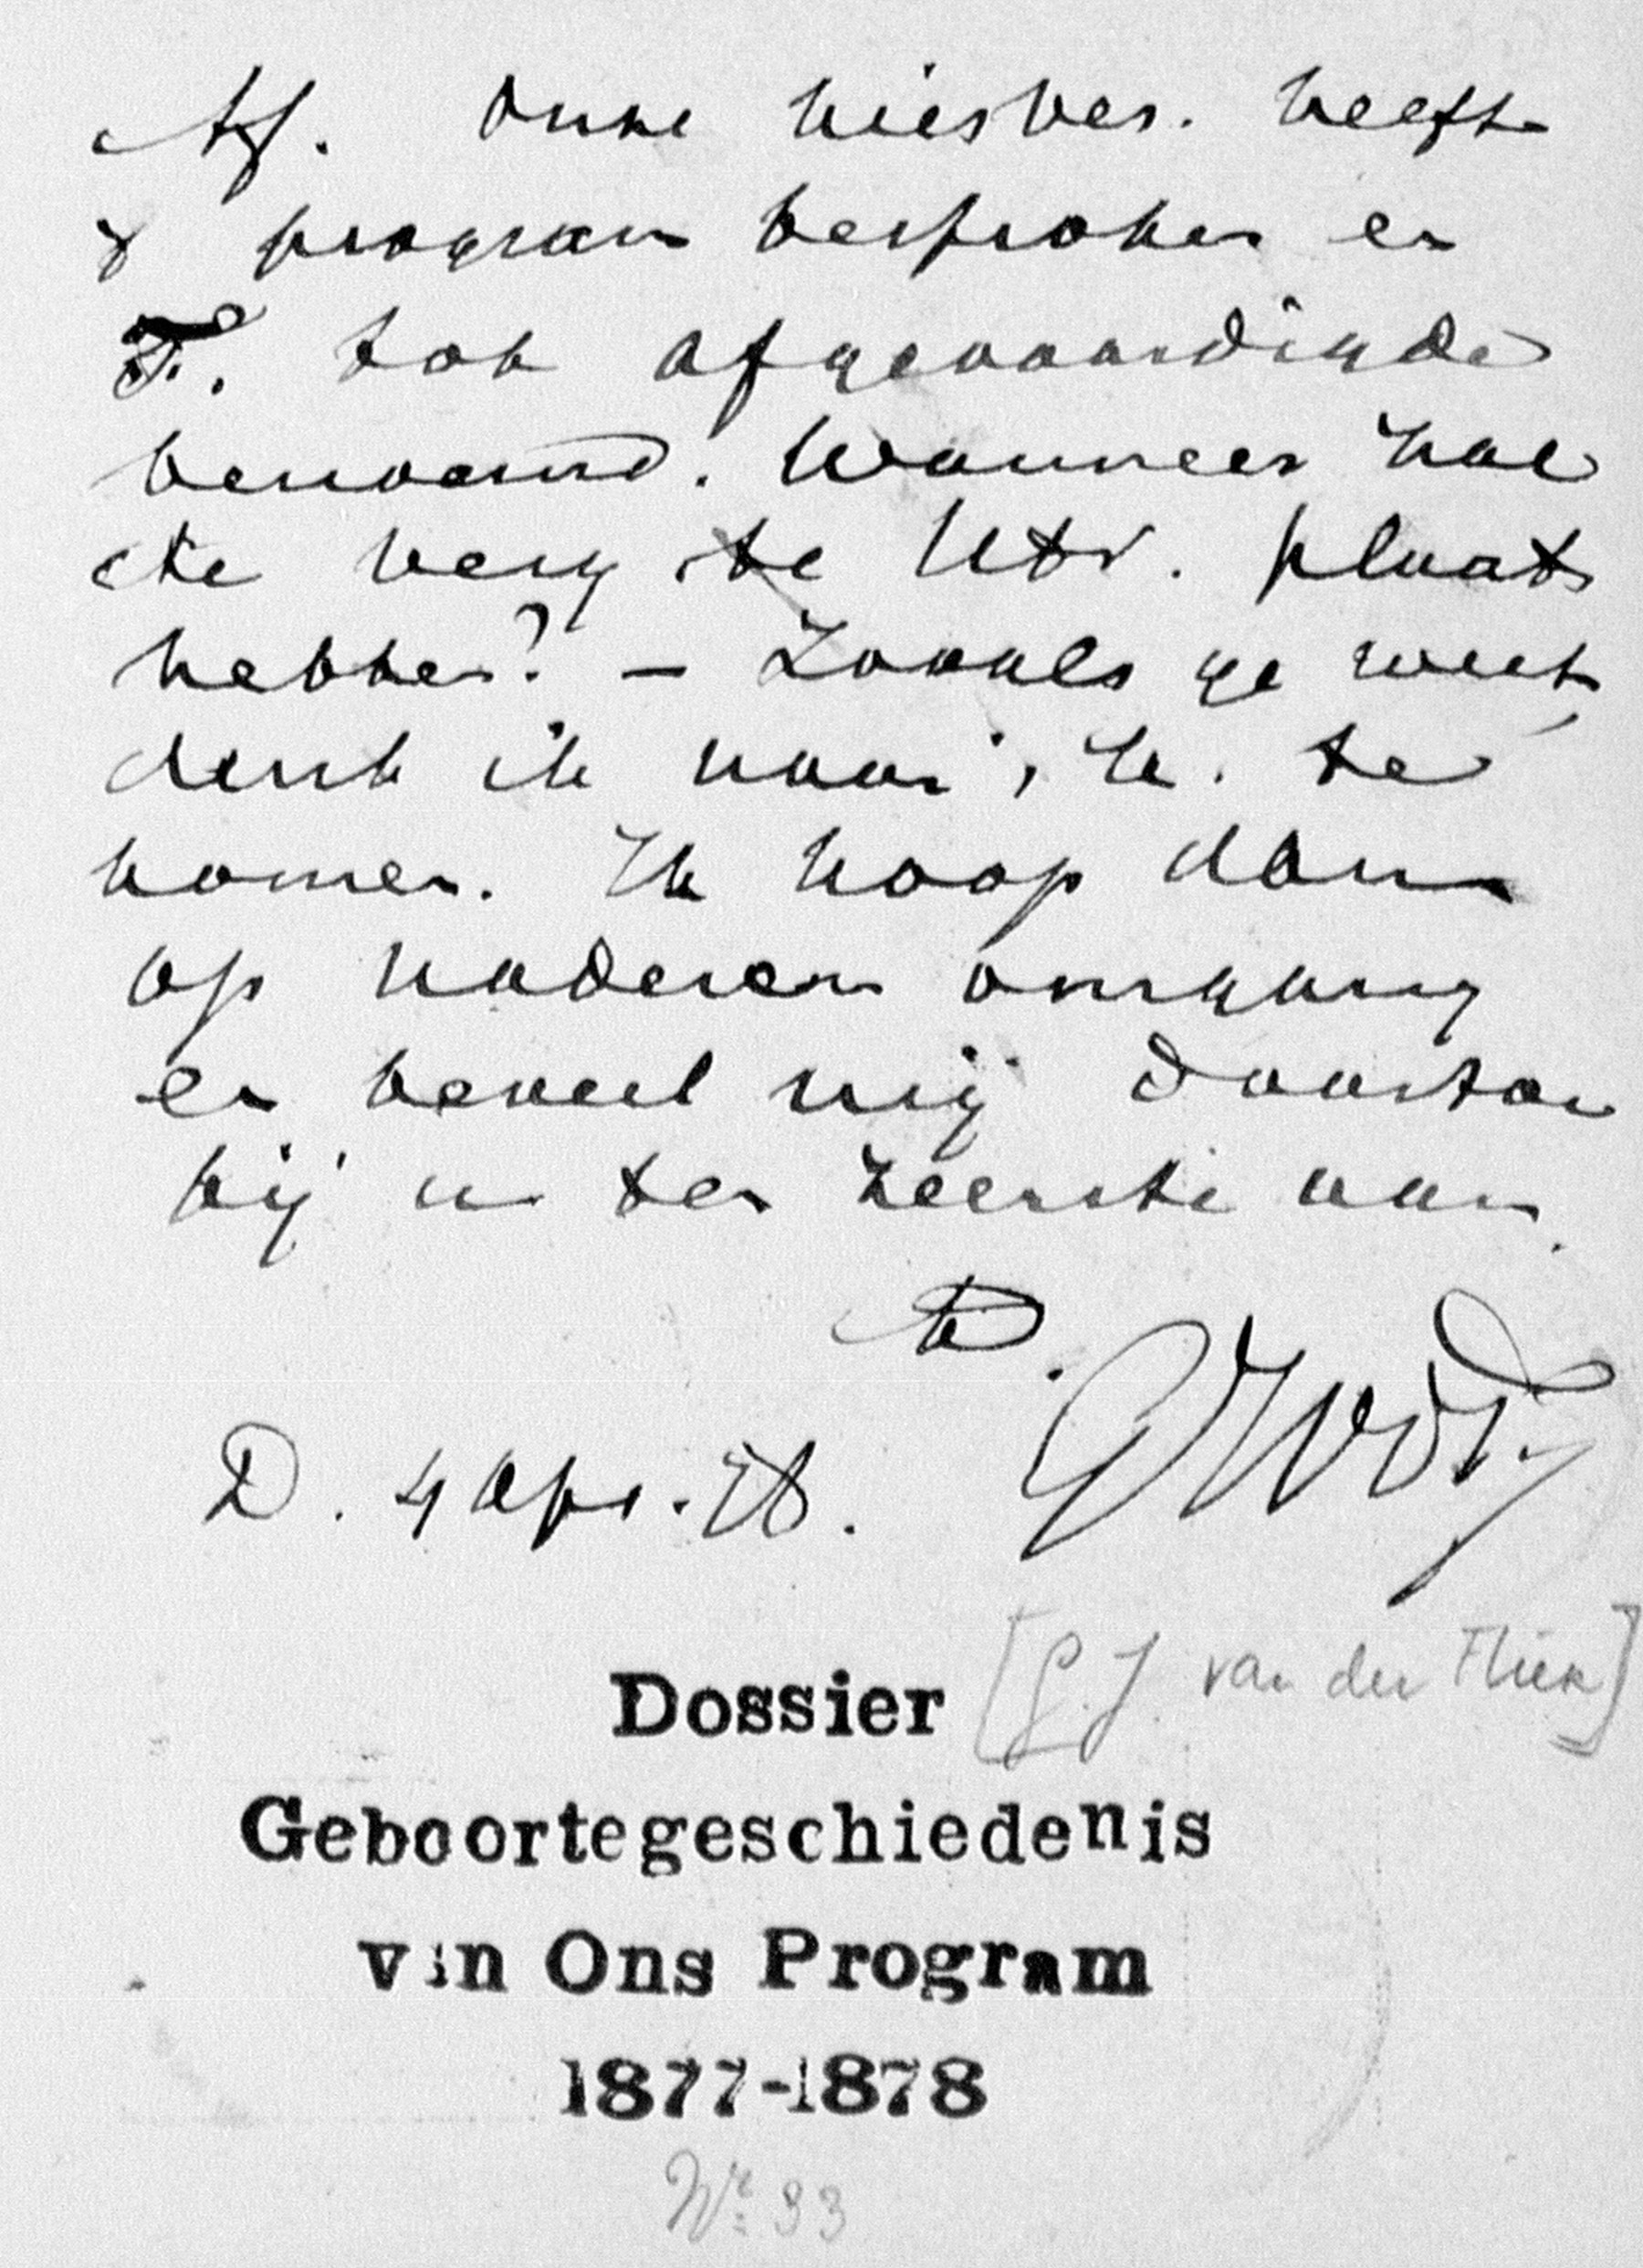 Af. Onze kiesver. heeft
't program besproken en
F. tot afgevaardigde
benoemd. Wanneer zal
de verg te Utr. plaats
hebben? – Zooals ge weet
denk ik naar 's H. te
komen. Ik hoop dan
op naderen omgang
en beveel mij daartoe
bij u ten zeerste aan.
D. 4 Apr. 78.
[G.J. van der Flier]
Dossier
Geboortegeschiedenis
van Ons Program
1877-1878
No 33